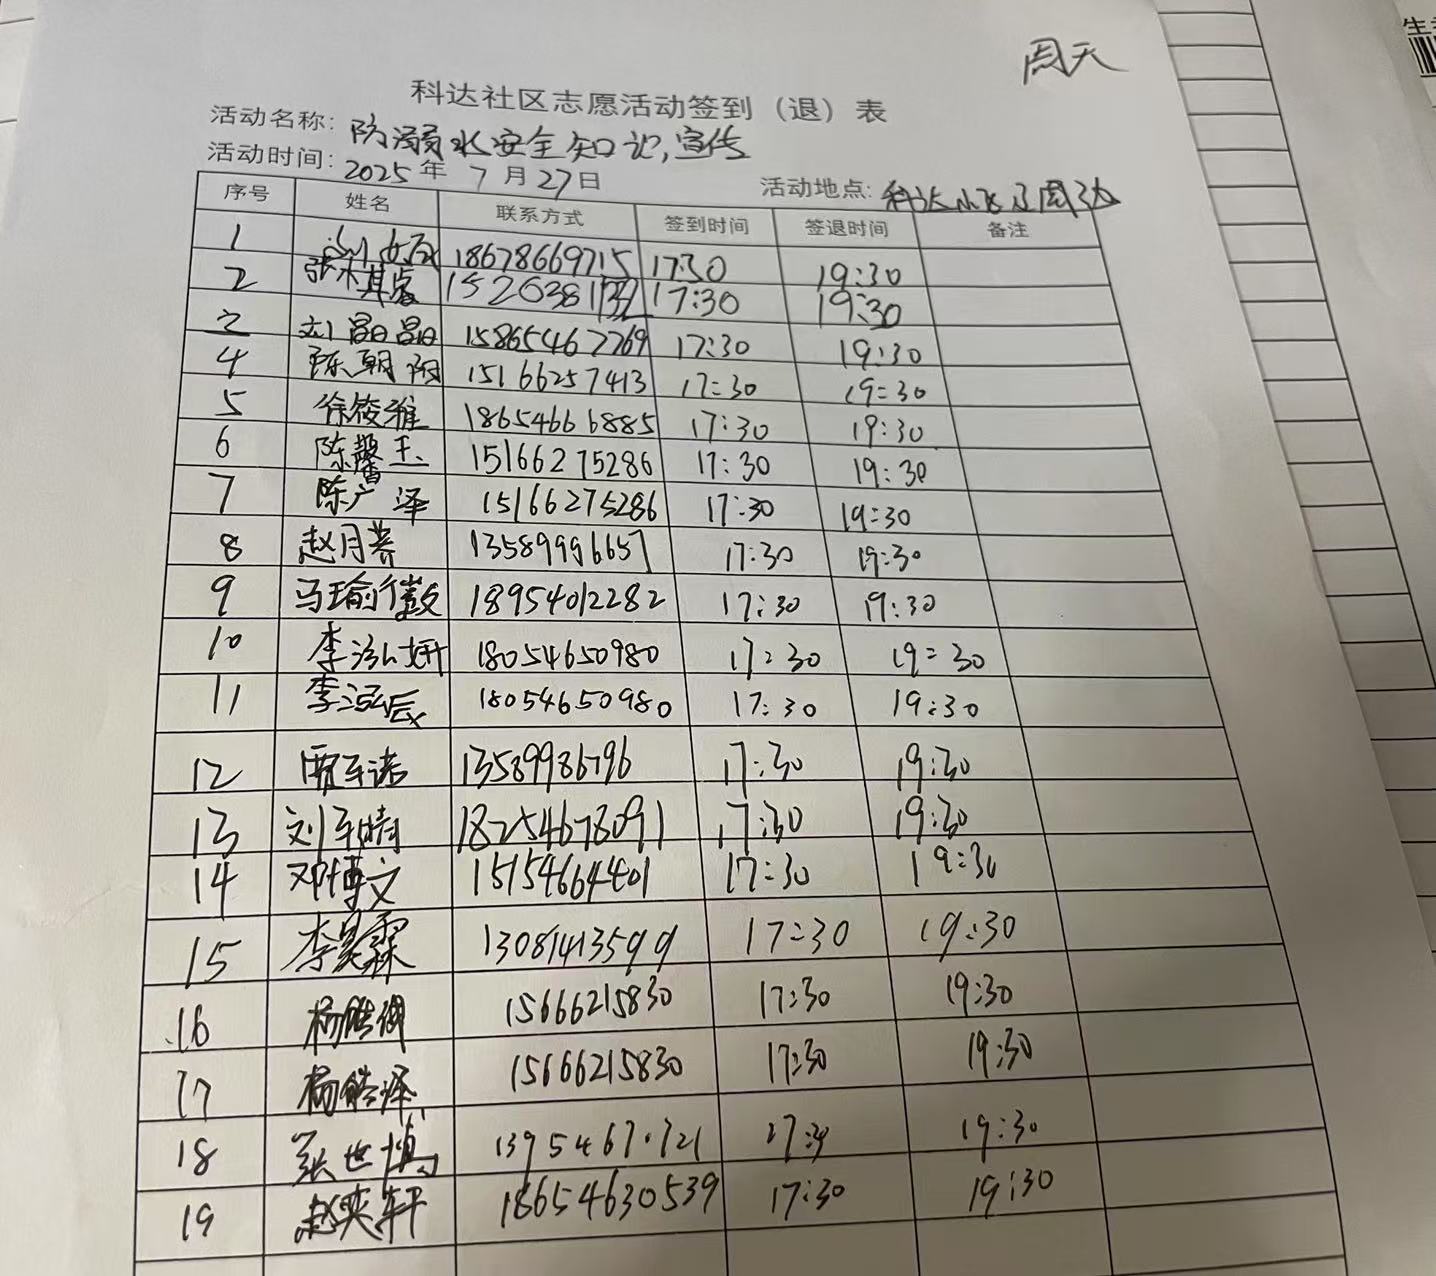 周天
科达社区志愿活动签到（退）表
活动名称: 防溺水安全知识宣传
活动时间: 2025年 7月27日 活动地点: 科达小区周边
序号 姓名 联系方式 签到时间 签退时间 备注
1 18678669715 17:30 19:30
2 17:30 19:30
刘昌昌 15865462769 17:30 19:30
4 陈朝 15166257413 17:30 19:30
5 徐筱雅 18654666885 17:30 19:30
6 陈馨玉 15166275286 17:30 19:30
7 陈广泽 15166275286 17:30 19:30
8 赵月 13589996657 17:30 19:30
9 马瑜 18954012282 17:30 19:30
10 李泓妍 18054650980 17:30 19:30
11 李泓辰 18054650980 17:30 19:30
12 贾 诺 13589986796 17:30 19:30
13 刘 晴 18254678091 17:30 19:30
14 邓博文 15154664401 17:30 19:30
15 李昊霖 13081413599 17:30 19:30
16 杨 15666215830 17:30 19:30
17 杨皓泽 15666215830 17:30 19:30
18 张世博 19:30
19 赵奕轩 18654630539 17:30 19:30